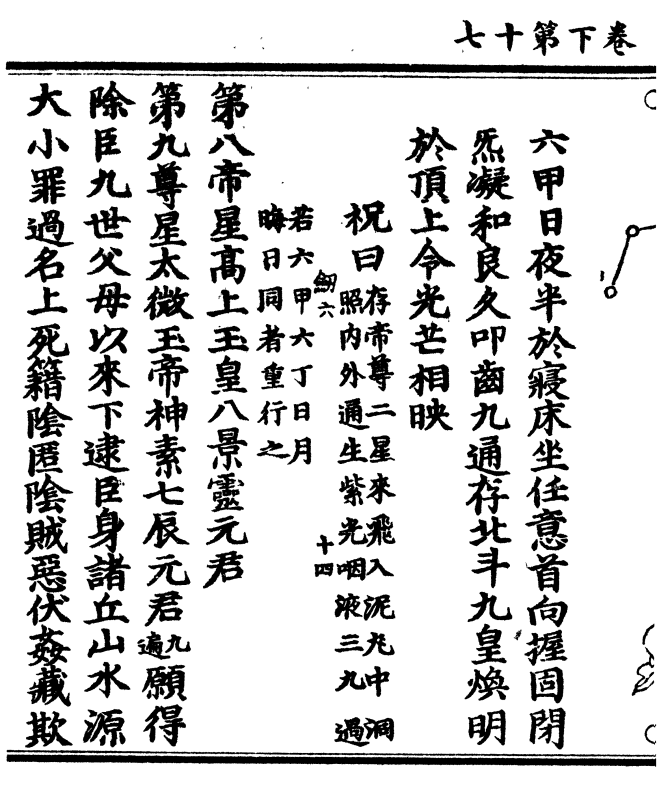 卷下第十七
六甲日夜半於寢床坐任意首向握固閉
炁凝和良久叩齒九通存北斗九皇煥明
於頂上令光芒相映
祝曰存帝尊二星來飛入泥丸中洞
照內外通生紫光咽液三九過
劒六
十四
若六甲六丁日月
晦日同者重行之
第八帝星高上玉皇八景靈元君
第九尊星太微玉帝神素七辰元君九遍願得
除臣九世父母以來下逮臣身諸丘山水源
大小罪過名上死籍陰匿陰賊惡伏姦藏欺